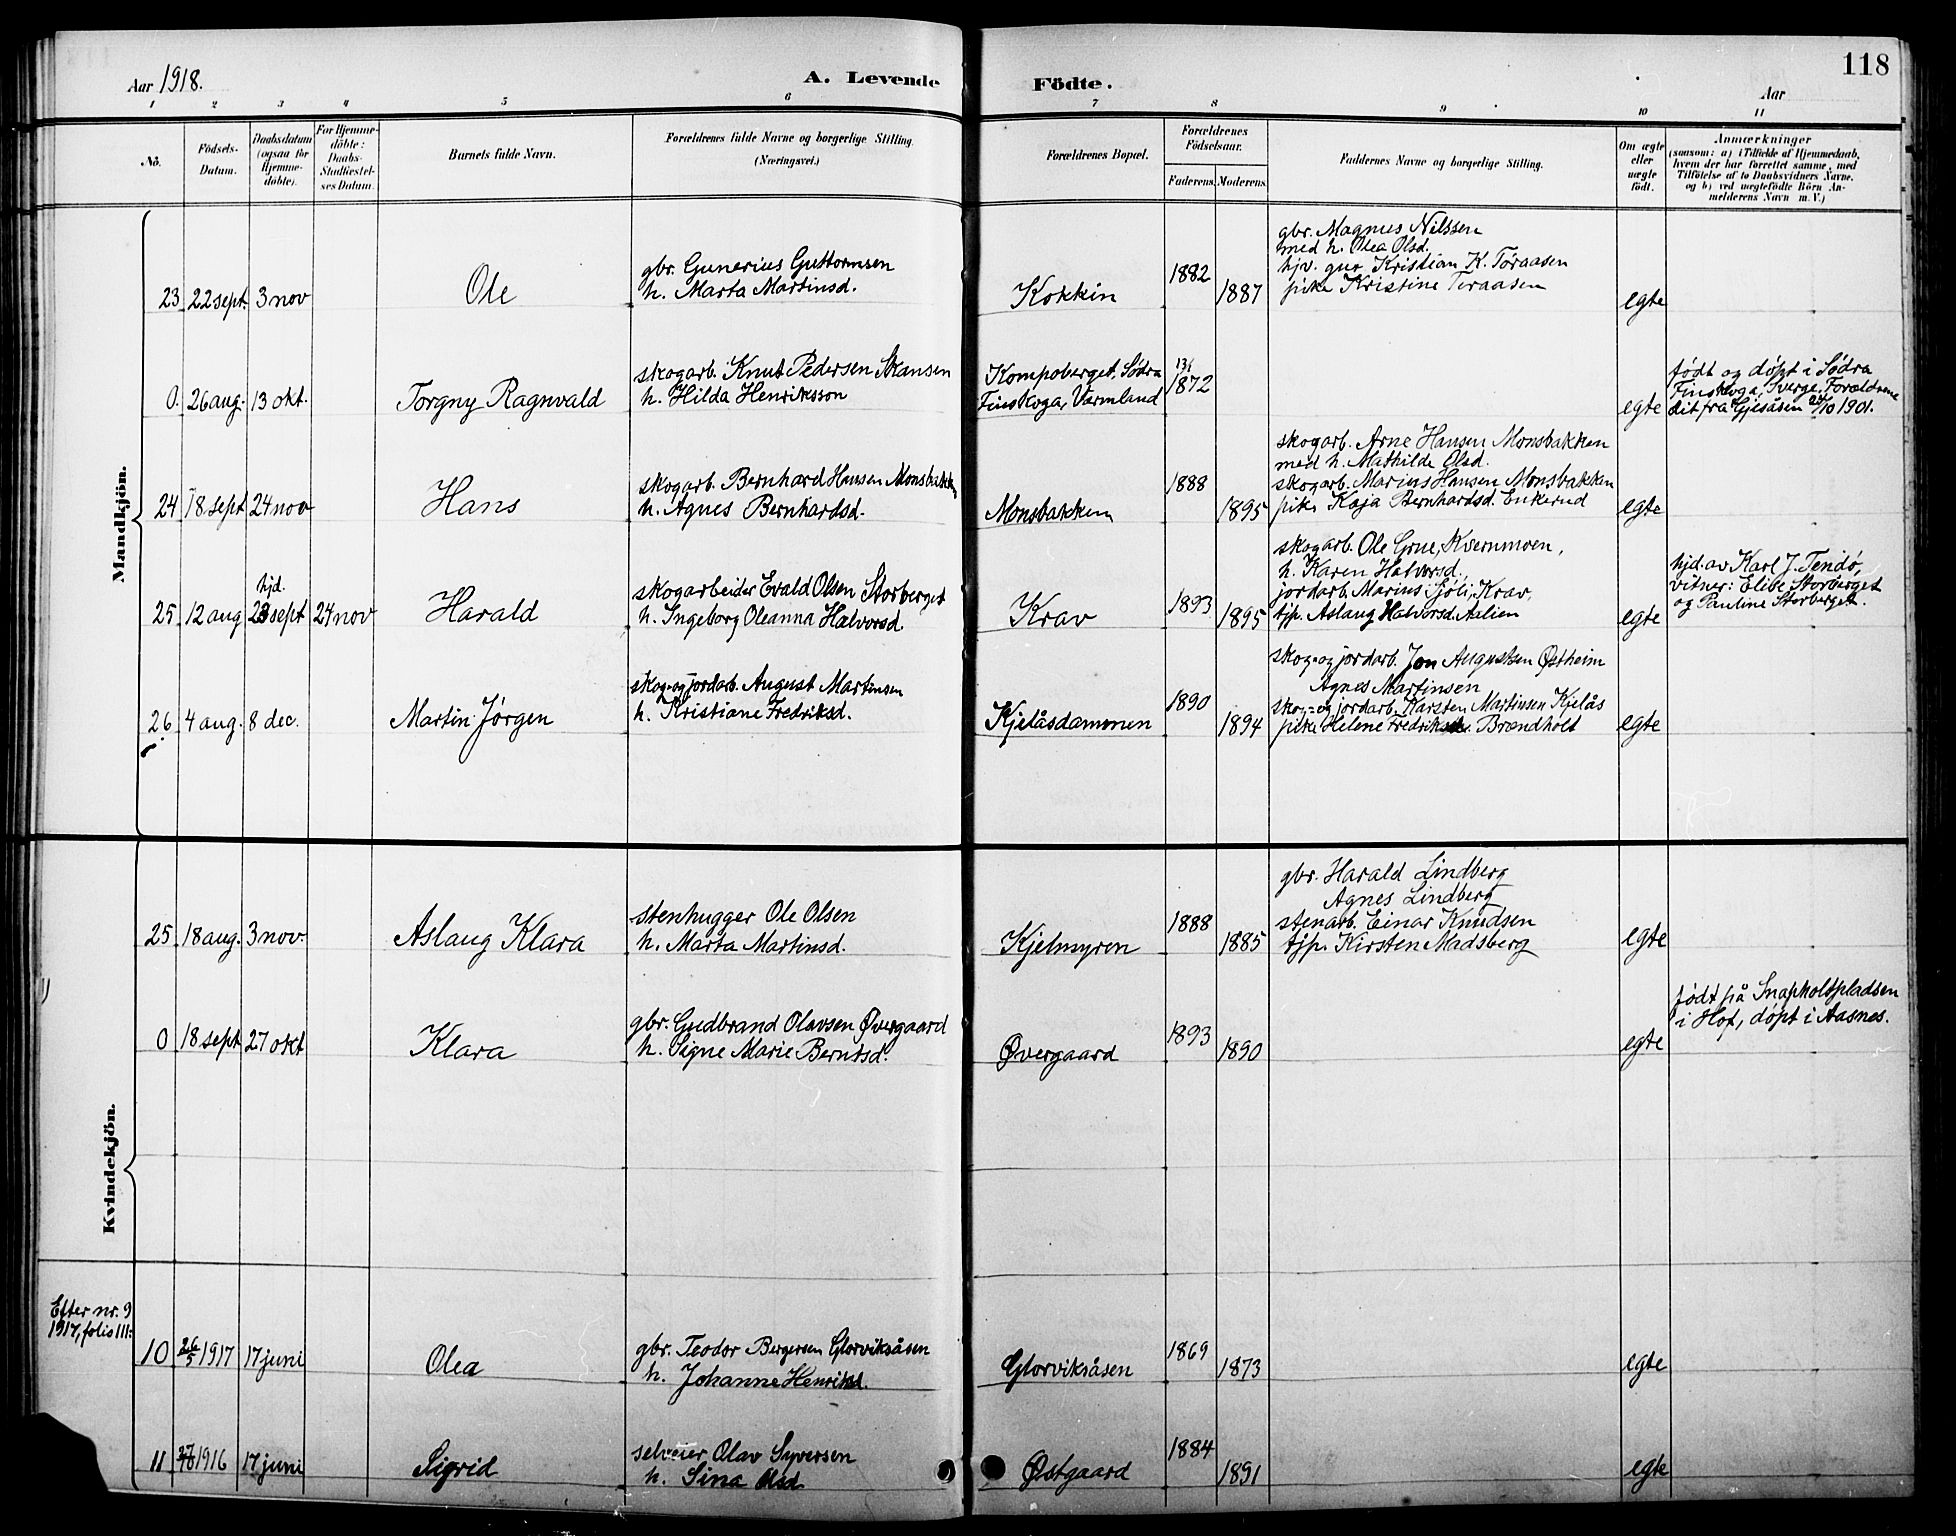 118
Aar 1918.
A. Levende Födte.
Aar
1 2 3 4 5 6 7 8 9 10 11
Nö.
Födsels-
Datum.
Daabsdatum
(ogsaa for
Hjemme-
döbte).
For Hjemme-
döbte:
Daabs-
Stadfæstel-
ses Datum.
Barnets fulde Navn.
Forældrenes fulde Navne og borgerlige Stilling
(Næringsvei.)
Forældrenes Bopæl.
Forældrenes
Födselsaar.
Faderens. Moderens.
Faddernes Navne og borgerlige Stilling.
Om ægte
eller
uægte
födt.
Anmærkninger
(saasom: a) i Tilfælde af Hjemmedaab,
hvem der har forrettet samme, med
Tilföielse af to Daabsvidners Navne.
og b) ved uægtefödte Börn An-
melderens Navn m. V.)
Mandkjön.
23 22 sept. 3 nov
Ole
gbr. Gunerius Guttormsen
h. Marta Martinsd.
Kokkin
1882
1887
gbr. Magnus Nilssen
med h. Olea Olsd.
hjv. gut Kristian K. Toraasen
pike Kristine Toraasen
egte
0. 26 aug. 13 okt.
Torgny Ragnvald
skogarb. Knut Pedersen Skansen
h. Hilda Henriksson
Kompoberget, Södra
Finskoga, Värmland
1872
egte
født og døpt i Södra
Finskoga, Sverge, Forældrene
dit fra Gjesåsen 24/10 1901.
24 18 sept 24 nov
Hans
skogarb. Bernhard Hansen Monsbakken
h. Agnes Bernhardsd.
Monsbakken
1888
1895
skogarb. Arne Hansen Monsbakken
med h. Mathilde Olsd.
skogarb. Marius Hansen Monsbakken
pike Kaja Bernhardsd. Enkerud
egte
25 12 aug hjd. 23 sept 24 nov
Harald
skogarbeider Evald Olsen Storberget
h. Ingeborg Oleanna Halvorsd.
Krav
1893
1895
skogarb. Ole Grue, Kvernmoen,
h. Karen Halvorsd.,
jordarb. Marius Sjöli, Krav,
tjp. Aslaug Halvorsd. Aalien
egte
hjd. av Karl J. Tendø,
vitner: Elise Storberget
og Pauline Storberget.
26 4 aug. 8 dec.
Martin Jørgen
skog- og jordarb. August Martinsen
h. Kristiane Fredriksd.
Kjelåsdammen
1890
1894
skog- og jordarb. Jon Augustsen Østheim
Agnes Martinsen
skog- og jordarb. Karsten Martinsen Kjelås
pike Helene Fredriksd. Brændholt
egte
Kvindekjön.
25 18 aug. 3 nov.
Aslaug Klara
stenhugger Ole Olsen
h. Marta Martinsd.
Kjelmyren
1888
1885
gbr. Harald Lindberg
Agnes Lindberg
stenarb. Einar Knudsen
tjp. Kirsten Madsberg
egte
0 18 sept 27 okt
Klara
gbr. Gudbrand Olavsen Øvergaard
h. Signe Marie Berntsd.
Øvergaard
1893
1890
egte
født på Snapholtpladsen
i Hof, døpt i Aasnes.
Efter nr. 9
1917, folio 111:
10 26/5 1917 17 juni
Olea
gbr. Teodor Bergersen Glorviksåsen
h. Johanne Henriksd.
Glorviksåsen
1869
1873
egte
11 27/10 1916 17 juni
Sigrid
selveier Olav Syversen
h. Sina Olsd.
Østgaard
1884
1891
egte